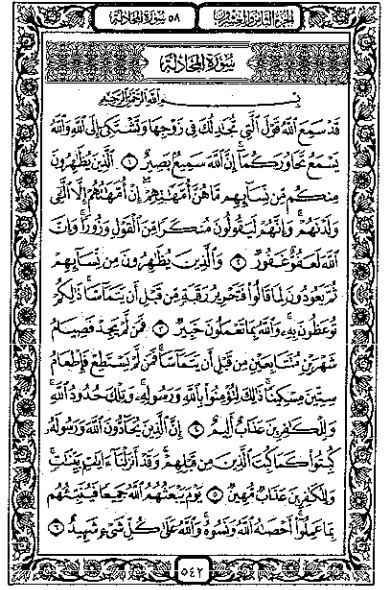 الجزء الثامن والعشرون
٥٨ سورة المجادلة
سورة المجادلة
بسم الله الرحمن الرحيم
قَدْ سَمِعَ اللَّهُ قَوْلَ الَّتِي تُجَادِلُكَ فِي زَوْجِهَا وَتَشْتَكِي إِلَى اللَّهِ وَاللَّهُ
يَسْمَعُ تَحَاوُرَكُمَا إِنَّ اللَّهَ سَمِيعٌ بَصِيرٌ ١ الَّذِينَ يُظَاهِرُونَ
مِنكُم مِّن نِّسَائِهِم مَّا هُنَّ أُمَّهَاتِهِمْ إِنْ أُمَّهَاتُهُمْ إِلَّا الَّتِي
وَلَدْنَهُمْ وَإِنَّهُمْ لَيَقُولُونَ مُنكَرًا مِّنَ الْقَوْلِ وَزُورًا وَإِنَّ
اللَّهَ لَعَفُوٌّ غَفُورٌ ٢ وَالَّذِينَ يُظَاهِرُونَ مِن نِّسَائِهِمْ
ثُمَّ يَعُودُونَ لِمَا قَالُوا فَتَحْرِيرُ رَقَبَةٍ مِّن قَبْلِ أَن يَتَمَاسَّا ذَٰلِكُمْ
تُوعَظُونَ بِهِ وَاللَّهُ بِمَا تَعْمَلُونَ خَبِيرٌ ٣ فَمَن لَّمْ يَجِدْ فَصِيَامُ
شَهْرَيْنِ مُتَتَابِعَيْنِ مِن قَبْلِ أَن يَتَمَاسَّا فَمَن لَّمْ يَسْتَطِعْ فَإِطْعَامُ
سِتِّينَ مِسْكِينًا ذَٰلِكَ لِتُؤْمِنُوا بِاللَّهِ وَرَسُولِهِ وَتِلْكَ حُدُودُ اللَّهِ
وَلِلْكَافِرِينَ عَذَابٌ أَلِيمٌ ٤ إِنَّ الَّذِينَ يُحَادُّونَ اللَّهَ وَرَسُولَهُ
كُبِتُوا كَمَا كُبِتَ الَّذِينَ مِن قَبْلِهِمْ وَقَدْ أَنزَلْنَا آيَاتٍ بَيِّنَاتٍ
وَلِلْكَافِرِينَ عَذَابٌ مُّهِينٌ ٥ يَوْمَ يَبْعَثُهُمُ اللَّهُ جَمِيعًا فَيُنَبِّئُهُم
بِمَا عَمِلُوا أَحْصَاهُ اللَّهُ وَنَسُوهُ وَاللَّهُ عَلَىٰ كُلِّ شَيْءٍ شَهِيدٌ ٦
٥٤٢